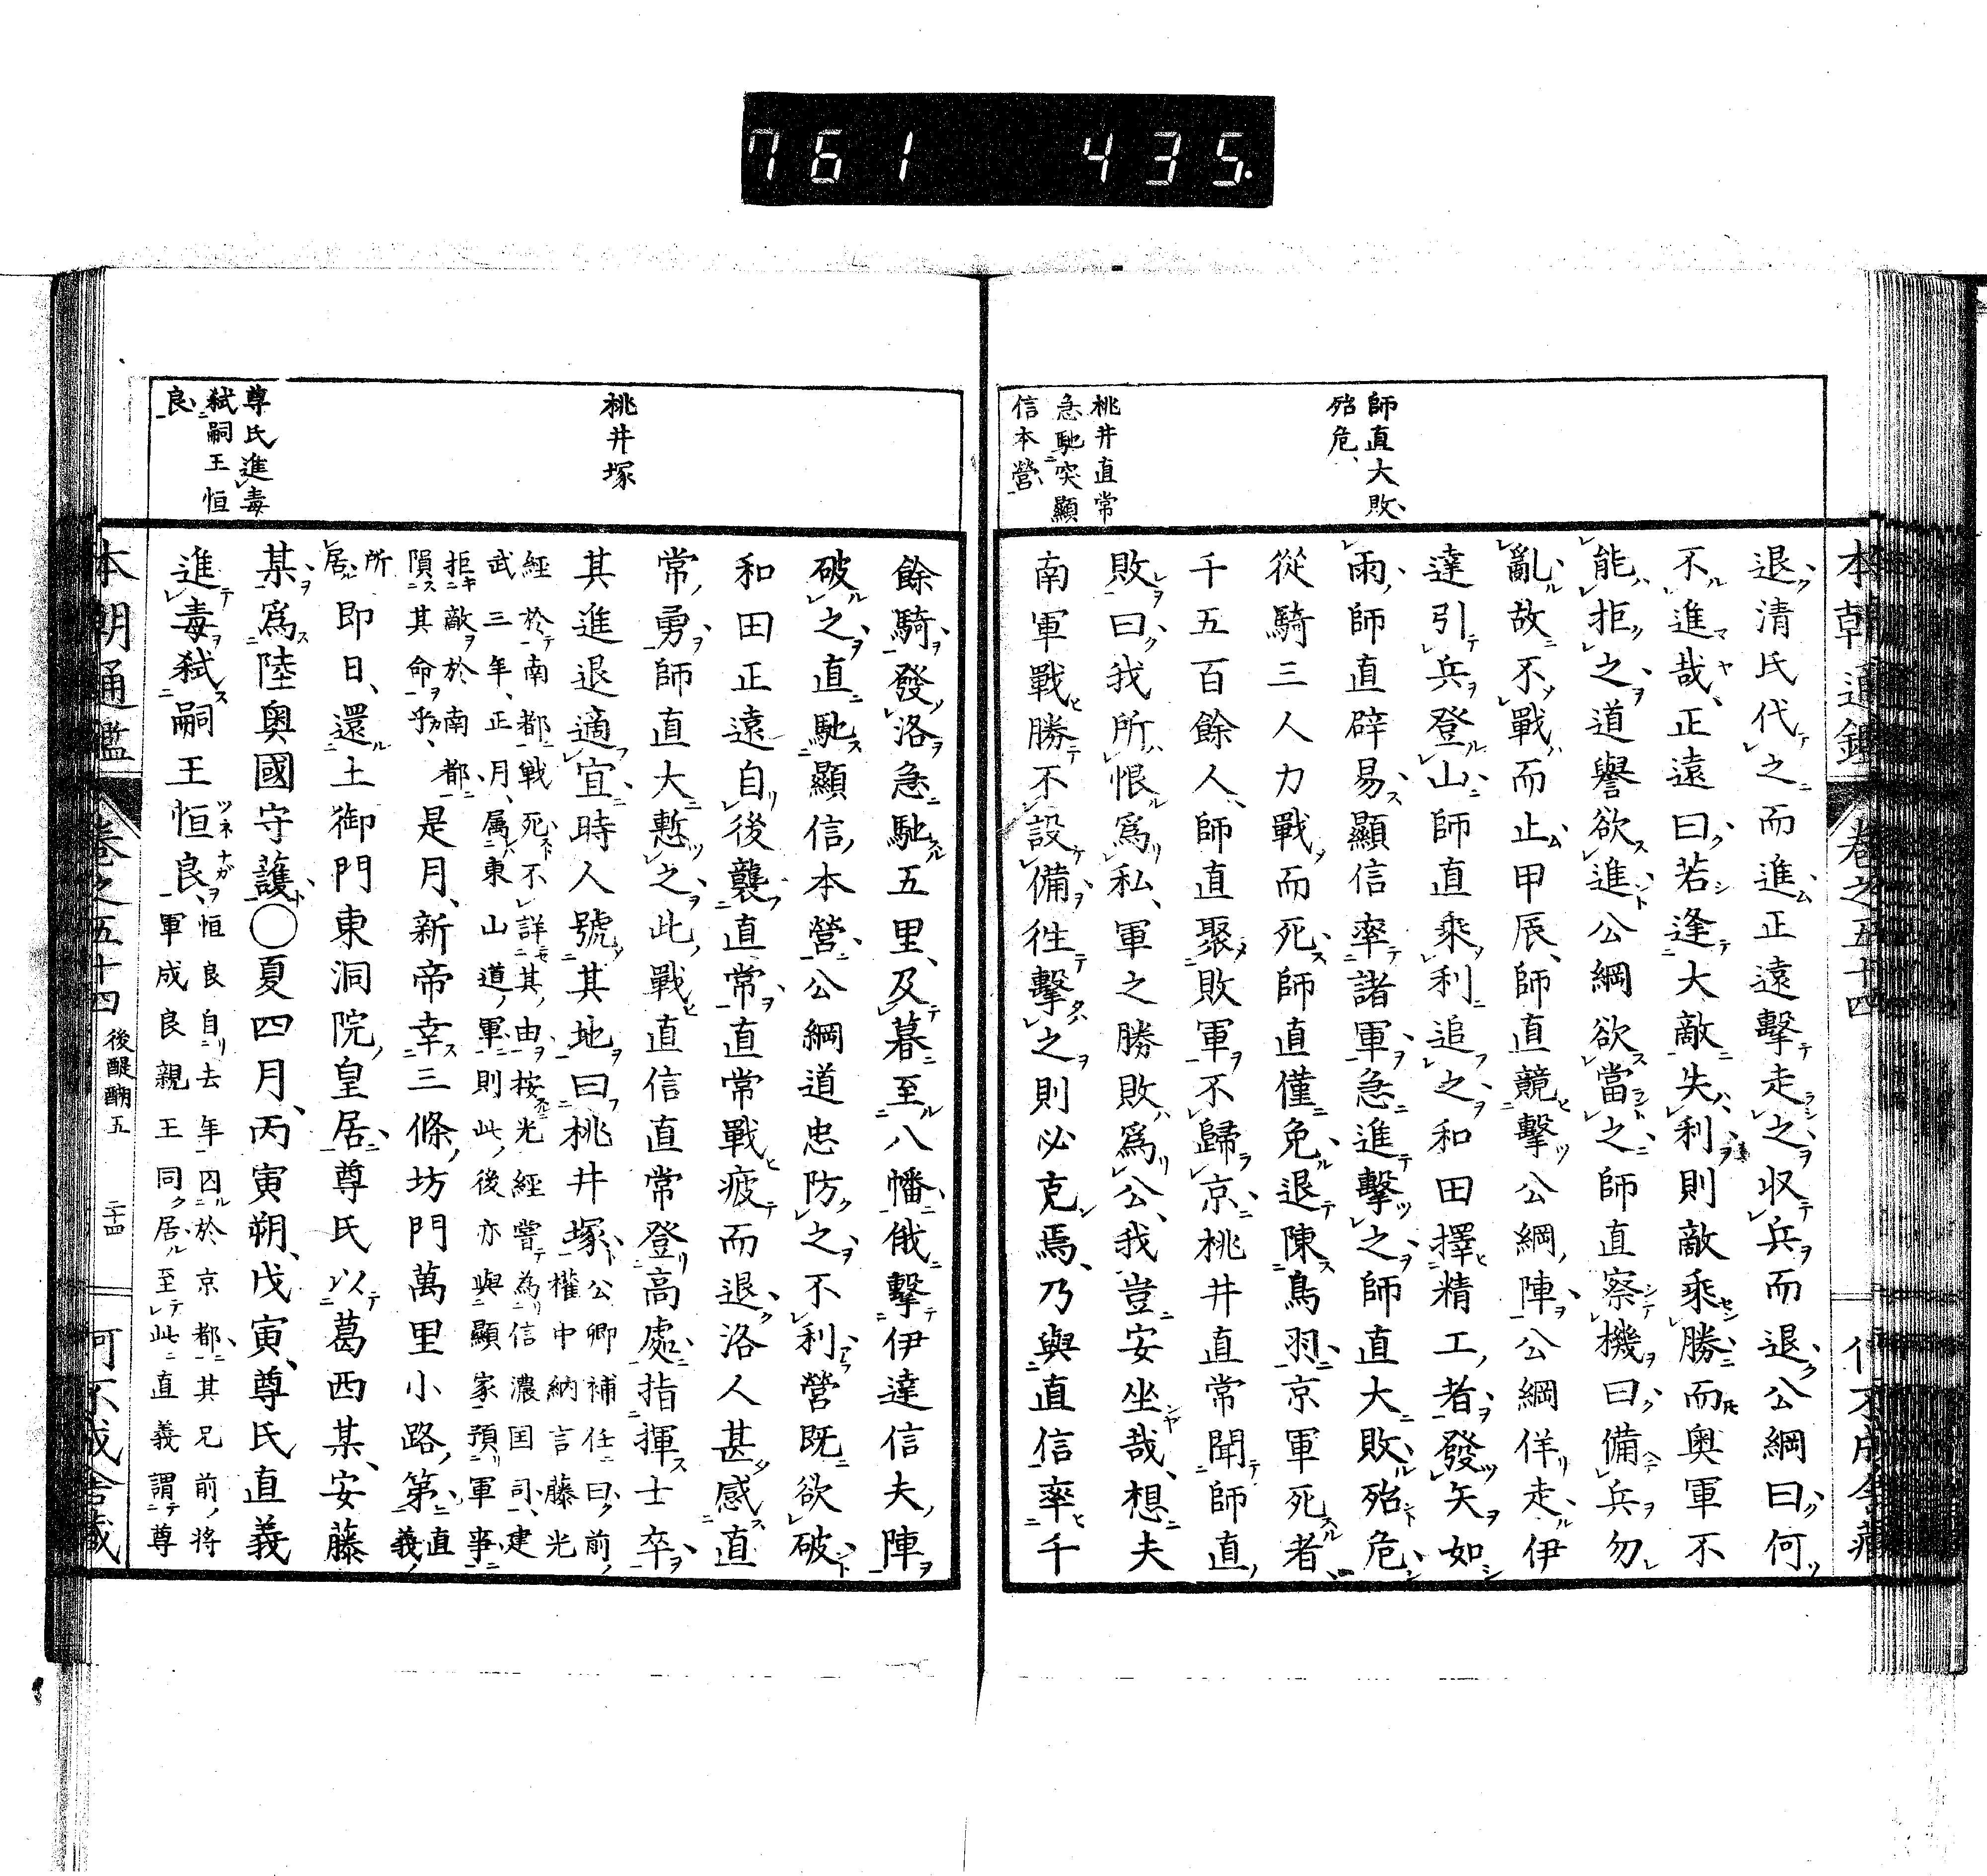 761 435.
本朝通鑑 卷之五十四
師直大敗
殆危
桃井直常
急馳突顯
信本營
退清氏代之而進正遠擊走之収兵而退公綱曰何
不進哉正遠曰若逢大敵失利則敵乘勝而奥軍不
能拒之道譽欲進公綱欲當之師直察機曰備兵勿
亂故不戰而止甲辰師直競擊公綱陣公綱佯走伊
達引兵登山師直乘利追之和田擇精工者發矢如
雨師直辟易顯信率諸軍急進擊之師直大敗殆危
從騎三人力戰而死師直僅免退陳鳥羽京軍死者
千五百餘人師直聚敗軍不歸京桃井直常聞師直
敗曰我所恨爲私軍之勝敗爲公我豈安坐哉想夫
南軍戰勝不設備徃擊之則必克焉乃與直信率千
桃井塚
尊氏進毒
弑嗣王恒
良
餘騎發洛急馳五里及暮至八幡俄擊伊達信夫陣
破之直馳顯信本營公綱道忠防之不利營既欲破
和田正遠自後襲直常直常戰疲而退洛人甚感直
常勇師直大慙之此戰直信直常登高處指揮士卒
其進退適宜時人號其地曰桃井塚公卿補任曰前
權中納言藤光
經於南都戰死不詳其由按光經嘗為信濃国司建
武三年正月属東山道軍則此後亦與顯家預軍事
拒敵於南都
隕其命乎是月新帝幸三條坊門萬里小路第直
義
所
居即日還土御門東洞院皇居尊氏以葛西某安藤
某爲陸奥國守護〇夏四月丙寅朔戊寅尊氏直義
進毒弑嗣王恒良恒良自去年囚於京都其兄前將
軍成良親王同居至此直義謂尊
本朝通鑑 卷之五十四 後醍醐五 二十四